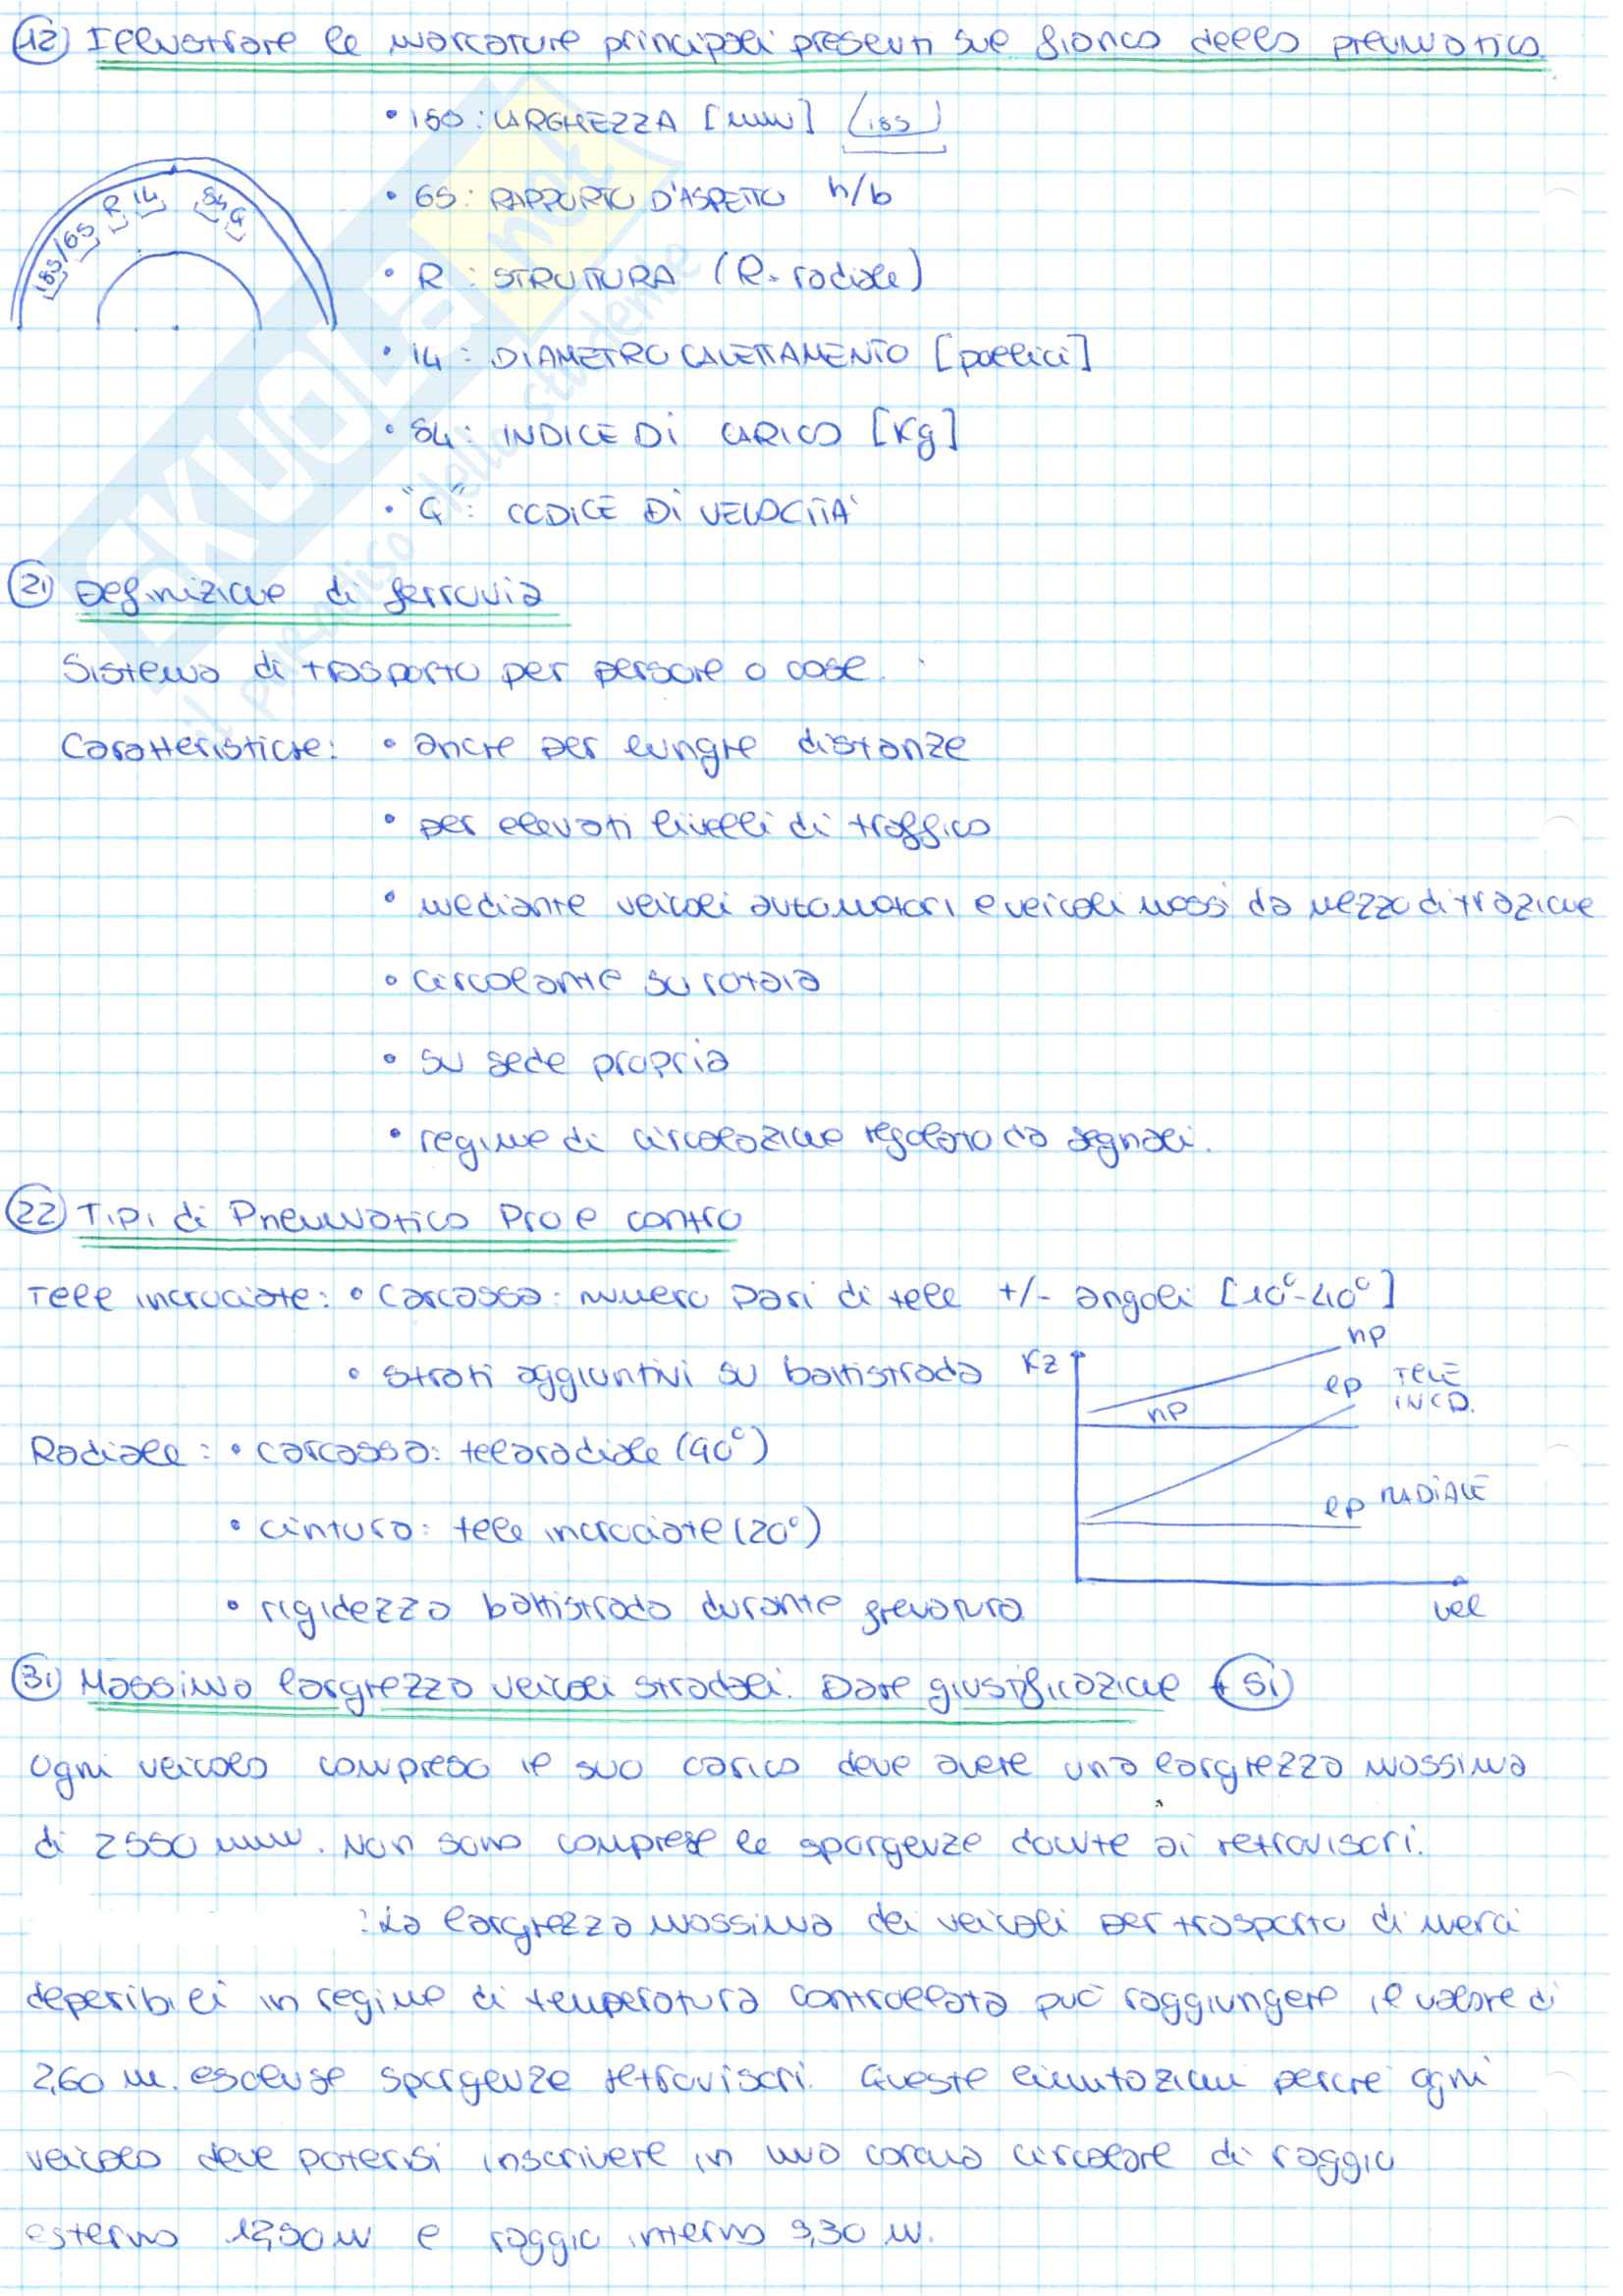 12) Illustrare le marcature principali presenti sul fianco dello pneumatico.
• 185 : LARGHEZZA [mm] 185
185/65 R 14 84 Q
• 65 : RAPPORTO D'ASPETTO h/b
• R : STRUTTURA (R. radiale)
• 14 : DIAMETRO CALETTAMENTO [pollici]
• 84 : INDICE DI CARICO [Kg]
• "Q" : CODICE DI VELOCITA'
21 Definizione di ferrovia
Sistema di trasporto per persone o cose.
Caratteristiche: • anche per lunghe distanze
• per elevati livelli di traffico
• mediante veicoli automotori e veicoli mossi da mezzo di trazione
• circolante su rotaia
• su sede propria
• regime di circolazione regolato da segnali.
22) Tipi di Pneumatico Pro e contro
Tele incrociate: • Carcassa: numero pari di tele +/- angoli [10°-40°]
• strati aggiuntivi su battistrada
Kz
np
lp TELE INCR.
np
Radiale: • carcassa: tela radiale (90°)
lp RADIALE
• cintura: tele incrociate (20°)
• rigidezza battistrada durante frenatura
vel
31) Massima larghezza veicoli stradali. Dare giustificazione + SI
Ogni veicolo compreso il suo carico deve avere una larghezza massima
di 2550 mm. Non sono comprese le sporgenze dovute ai retrovisori.
: La larghezza massima dei veicoli per trasporto di merci
deperibili in regime di temperatura controllata può raggiungere il valore di
2,60 m. escluse sporgenze retrovisori. Queste limitazioni perchè ogni
veicolo deve potersi inscrivere in una corona circolare di raggio
esterno 12,50 m e raggio interno 5,30 m.
SKUOLA.net
il paradiso dello studente